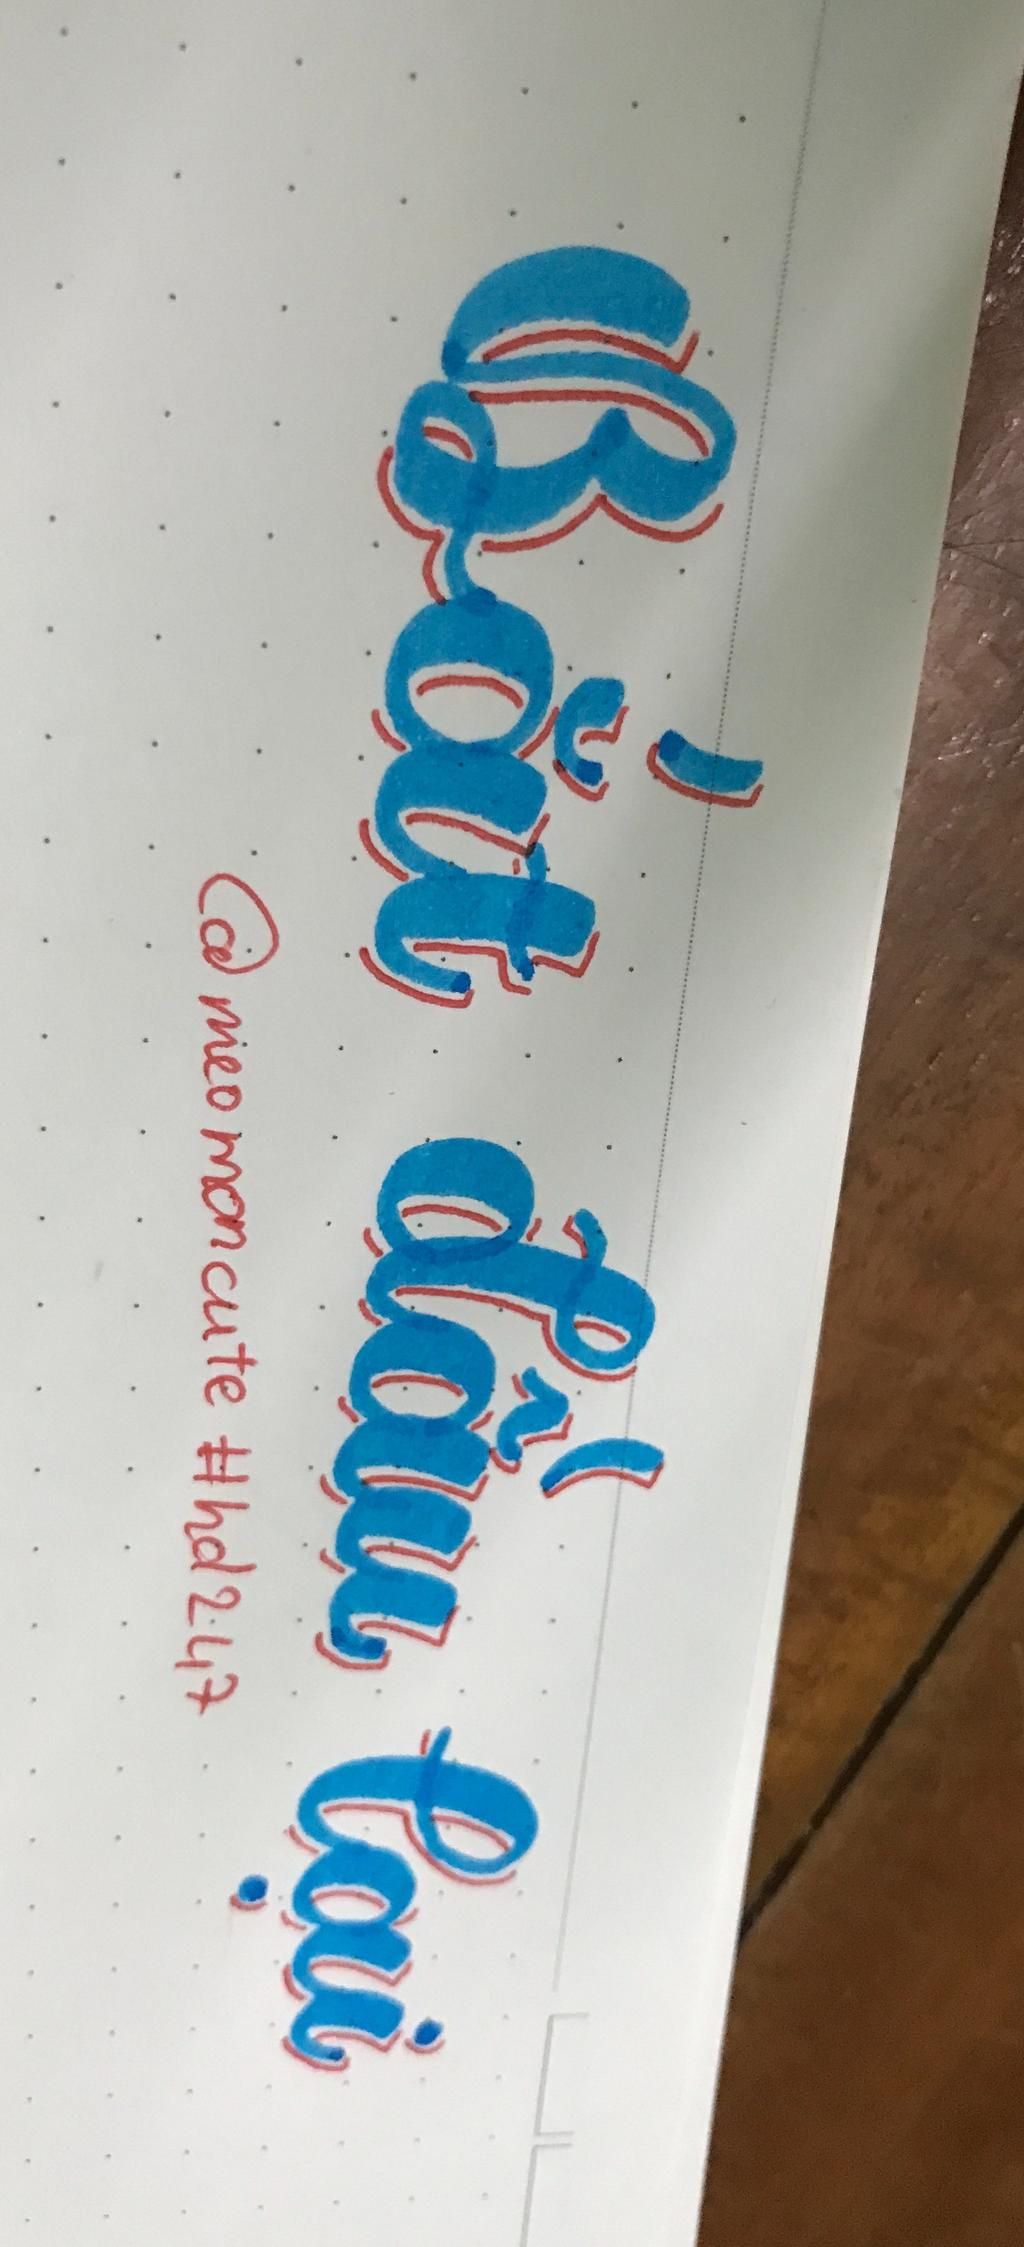 Bắt đầu lại
@meomoncute #hd247